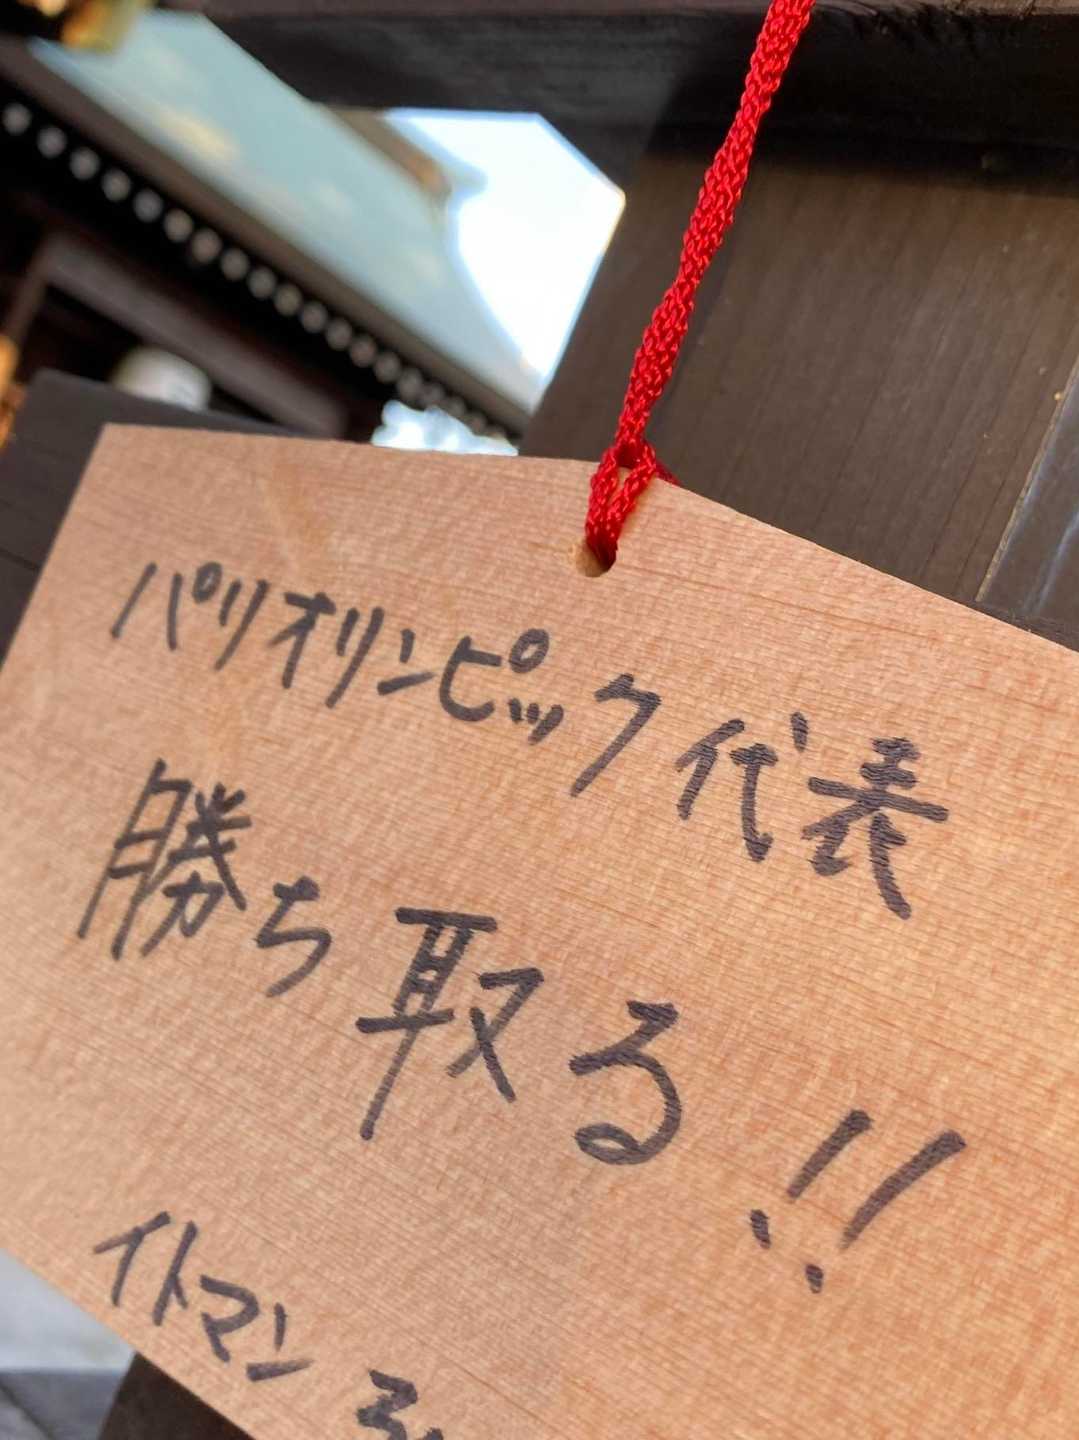 パリオリンピック代表
勝ち取る!!
イトマン